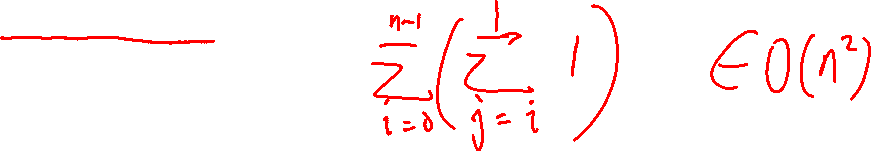 \sum_{i=0}^{n-1} \left( \sum_{j=i}^{1} 1 \right) \in O(n^2)